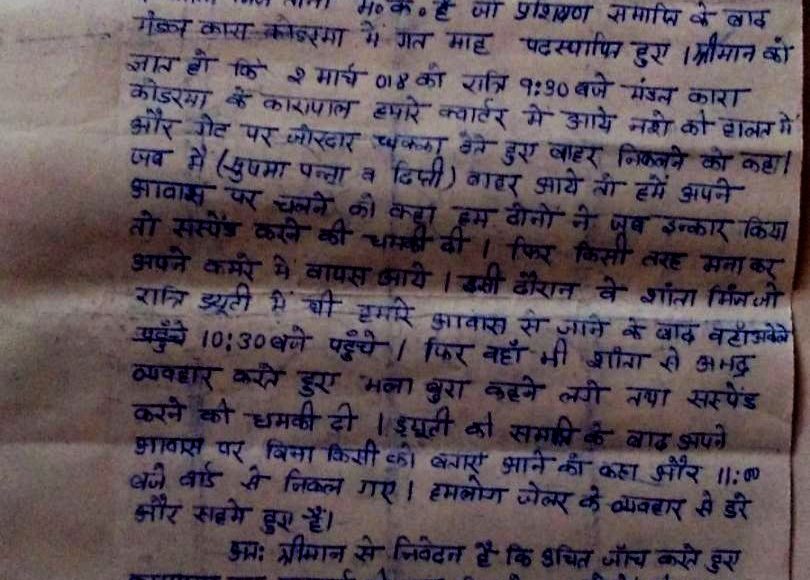 म०क० है जो प्रशिक्षण समाप्ति के बाद
मंडल कारा कोडरमा में गत माह पदस्थापित हुए । श्रीमान को
ज्ञात हो कि 2 मार्च 018 को रात्रि 9:30 बजे मंडल कारा
कोडरमा के कारापाल हमारे क्वार्टर में आये नशे की हालत में
और गेट पर जोरदार धक्का देते हुए बाहर निकलने को कहा।
जब मैं (सुषमा पन्ना व दिप्ती) बाहर आये तो हमें अपने
आवास पर चलने को कहा हम दोनों ने जब इन्कार किया
तो सस्पेंड करने की धमकी दी । फिर किसी तरह मना कर
अपने कमरे में वापस आये । इसी दौरान वे शांता मिंज जो
रात्रि ड्यूटी में थी हमारे आवास से जाने के बाद वहाँ अकेले
पहुँचे 10:30 बजे पहुँचे । फिर वहाँ भी शांता से अभद्र
व्यवहार करते हुए भला बुरा कहने लगे तथा सस्पेंड
करने की धमकी दी । ड्यूटी की समाप्ति के बाद अपने
आवास पर बिना किसी को बताए आने को कहा और 11:00
बजे वार्ड से निकल गए । हमलोग जेलर के व्यवहार से डरे
और सहमे हुए हैं।
अतः श्रीमान से निवेदन है कि उचित जाँच करते हुए